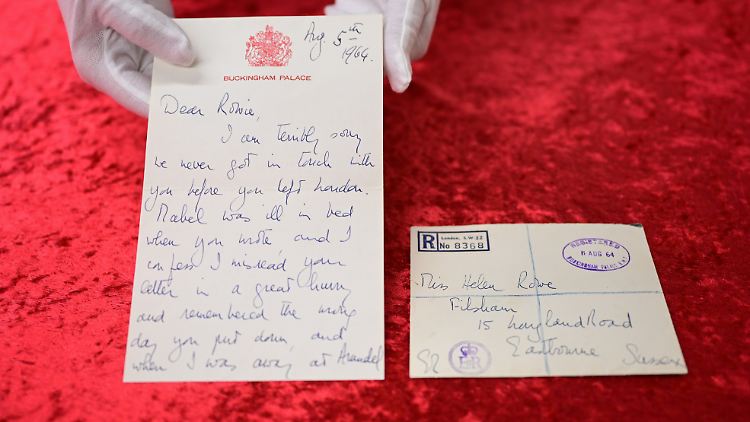 Aug. 5th
1964
BUCKINGHAM PALACE
Dear Rowie,
I am terribly sorry
we never got in touch with
you before you left London.
Mabel was ill in bed
when you wrote, and I
confess I misread your
letter in a great hurry
and remembered the wrong
day you put down, and
when I was away at Arundel
R
London, S.W.
No 8368
REGISTERED
AUG 64
BUCKINGHAM PALACE
Miss Helen Rowe
Filsham
15 Road
Eastbourne Sussex
EIIR